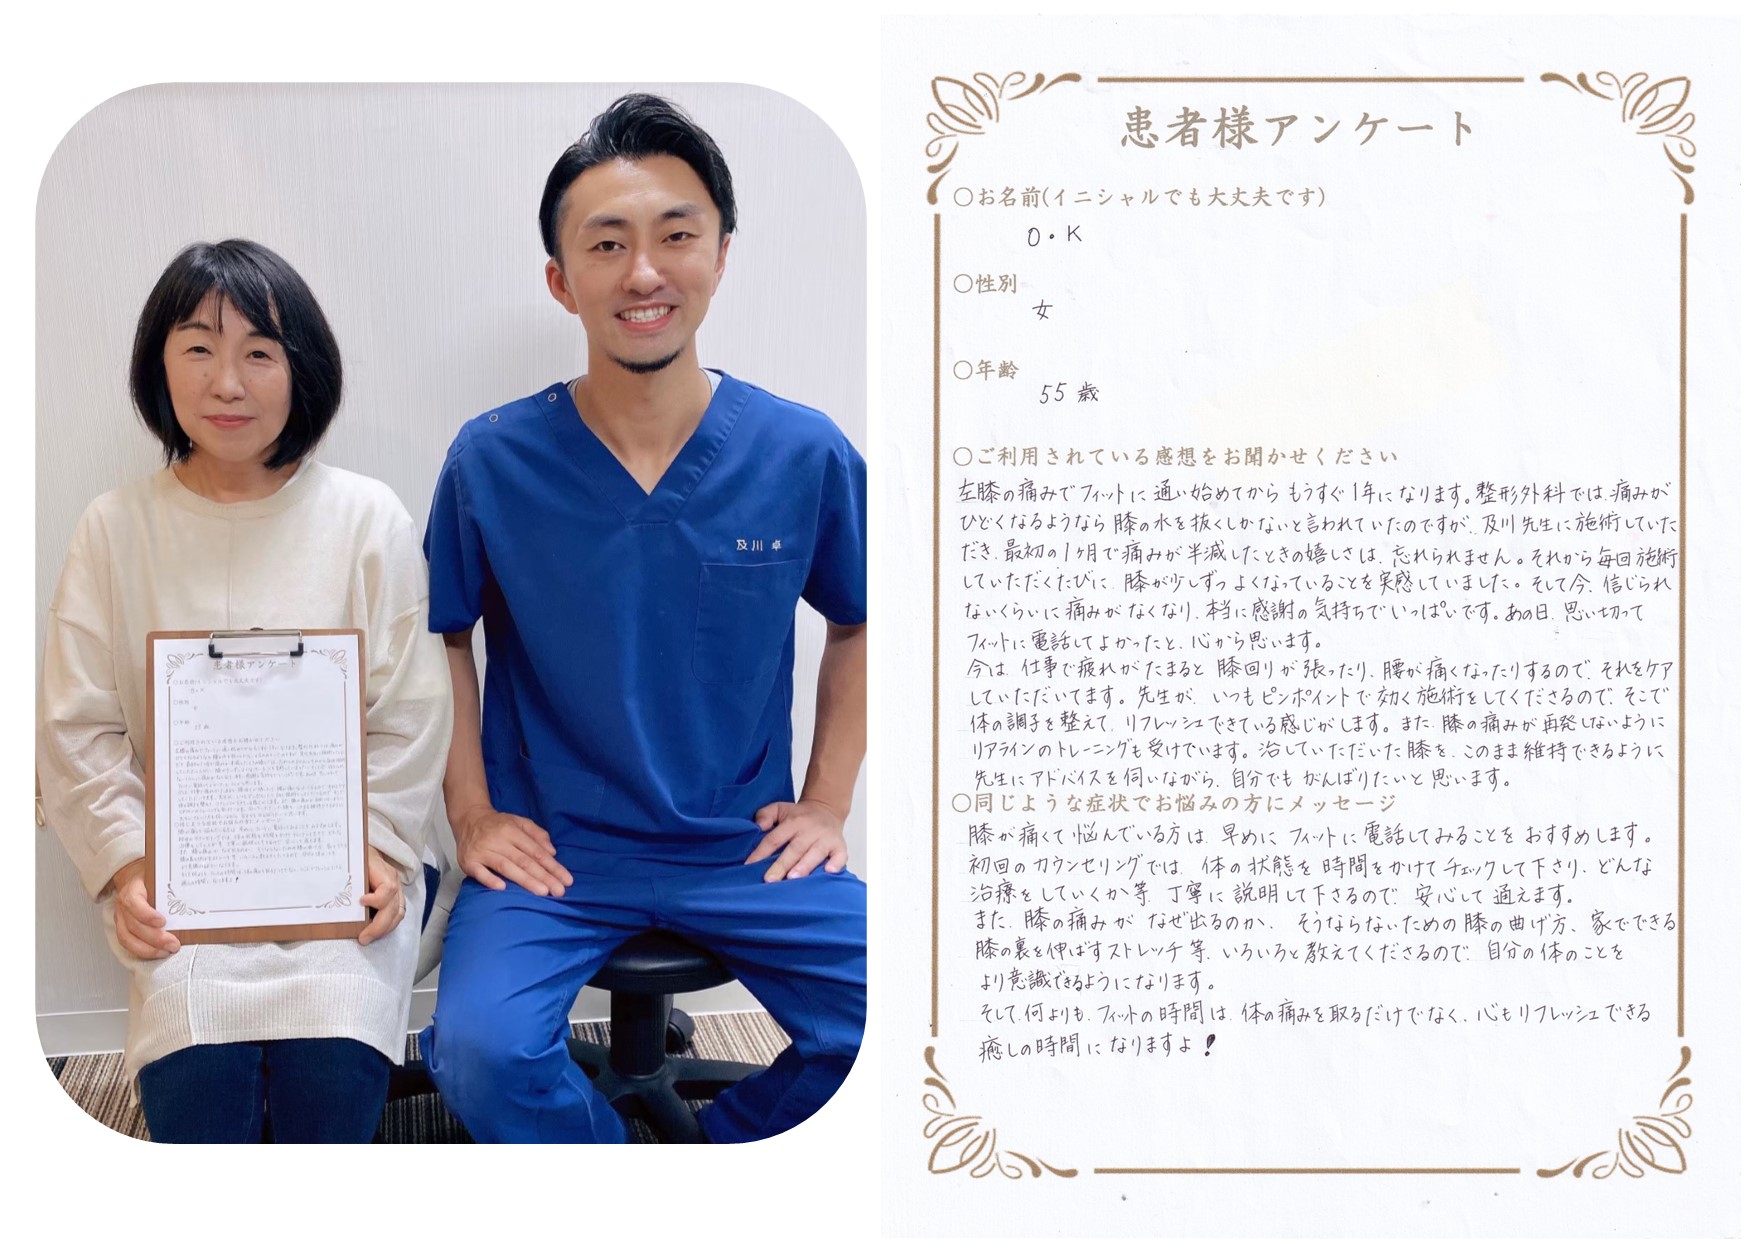 及川 卓
患者様アンケート
患者様アンケート
○お名前(イニシャルでも大丈夫です)
O・K
○性別
女
○年齢
55歳
○ご利用されている感想をお聞かせください
左膝の痛みでフィットに通い始めてからもうすぐ1年になります。整形外科では、痛みが
ひどくなるようなら膝の水を抜くしかないと言われていたのですが、及川先生に施術していた
だき、最初の1ヶ月で痛みが半減したときの嬉しさは、忘れられません。それから毎回施術
していただくたびに、膝が少しずつよくなっていることを実感していました。そして今、信じられ
ないくらいに痛みがなくなり、本当に感謝の気持ちでいっぱいです。あの日、思い切って
フィットに電話してよかったと、心から思います。
今は、仕事で疲れがたまると膝回りが張ったり、腰が痛くなったりするので、それをケア
していただいてます。先生が、いつもピンポイントで効く施術をしてくださるので、そこで
体の調子を整えて、リフレッシュできている感じがします。また、膝の痛みが再発しないように
リアラインのトレーニングも受けています。治していただいた膝を、このまま維持できるように
先生にアドバイスを伺いながら、自分でもがんばりたいと思います。
○同じような症状でお悩みの方にメッセージ
膝が痛くて悩んでいる方は、早めにフィットに電話してみることをおすすめします。
初回のカウンセリングでは、体の状態を時間をかけてチェックして下さり、どんな
治療をしていくか等、丁寧に説明して下さるので、安心して通えます。
また、膝の痛みがなぜ出るのか、そうならないための膝の曲げ方、家でできる
膝の裏を伸ばすストレッチ等、いろいろと教えてくださるので、自分の体のことを
より意識できるようになります。
そして、何よりも、フィットの時間は、体の痛みを取るだけでなく、心もリフレッシュできる
癒しの時間になりますよ!